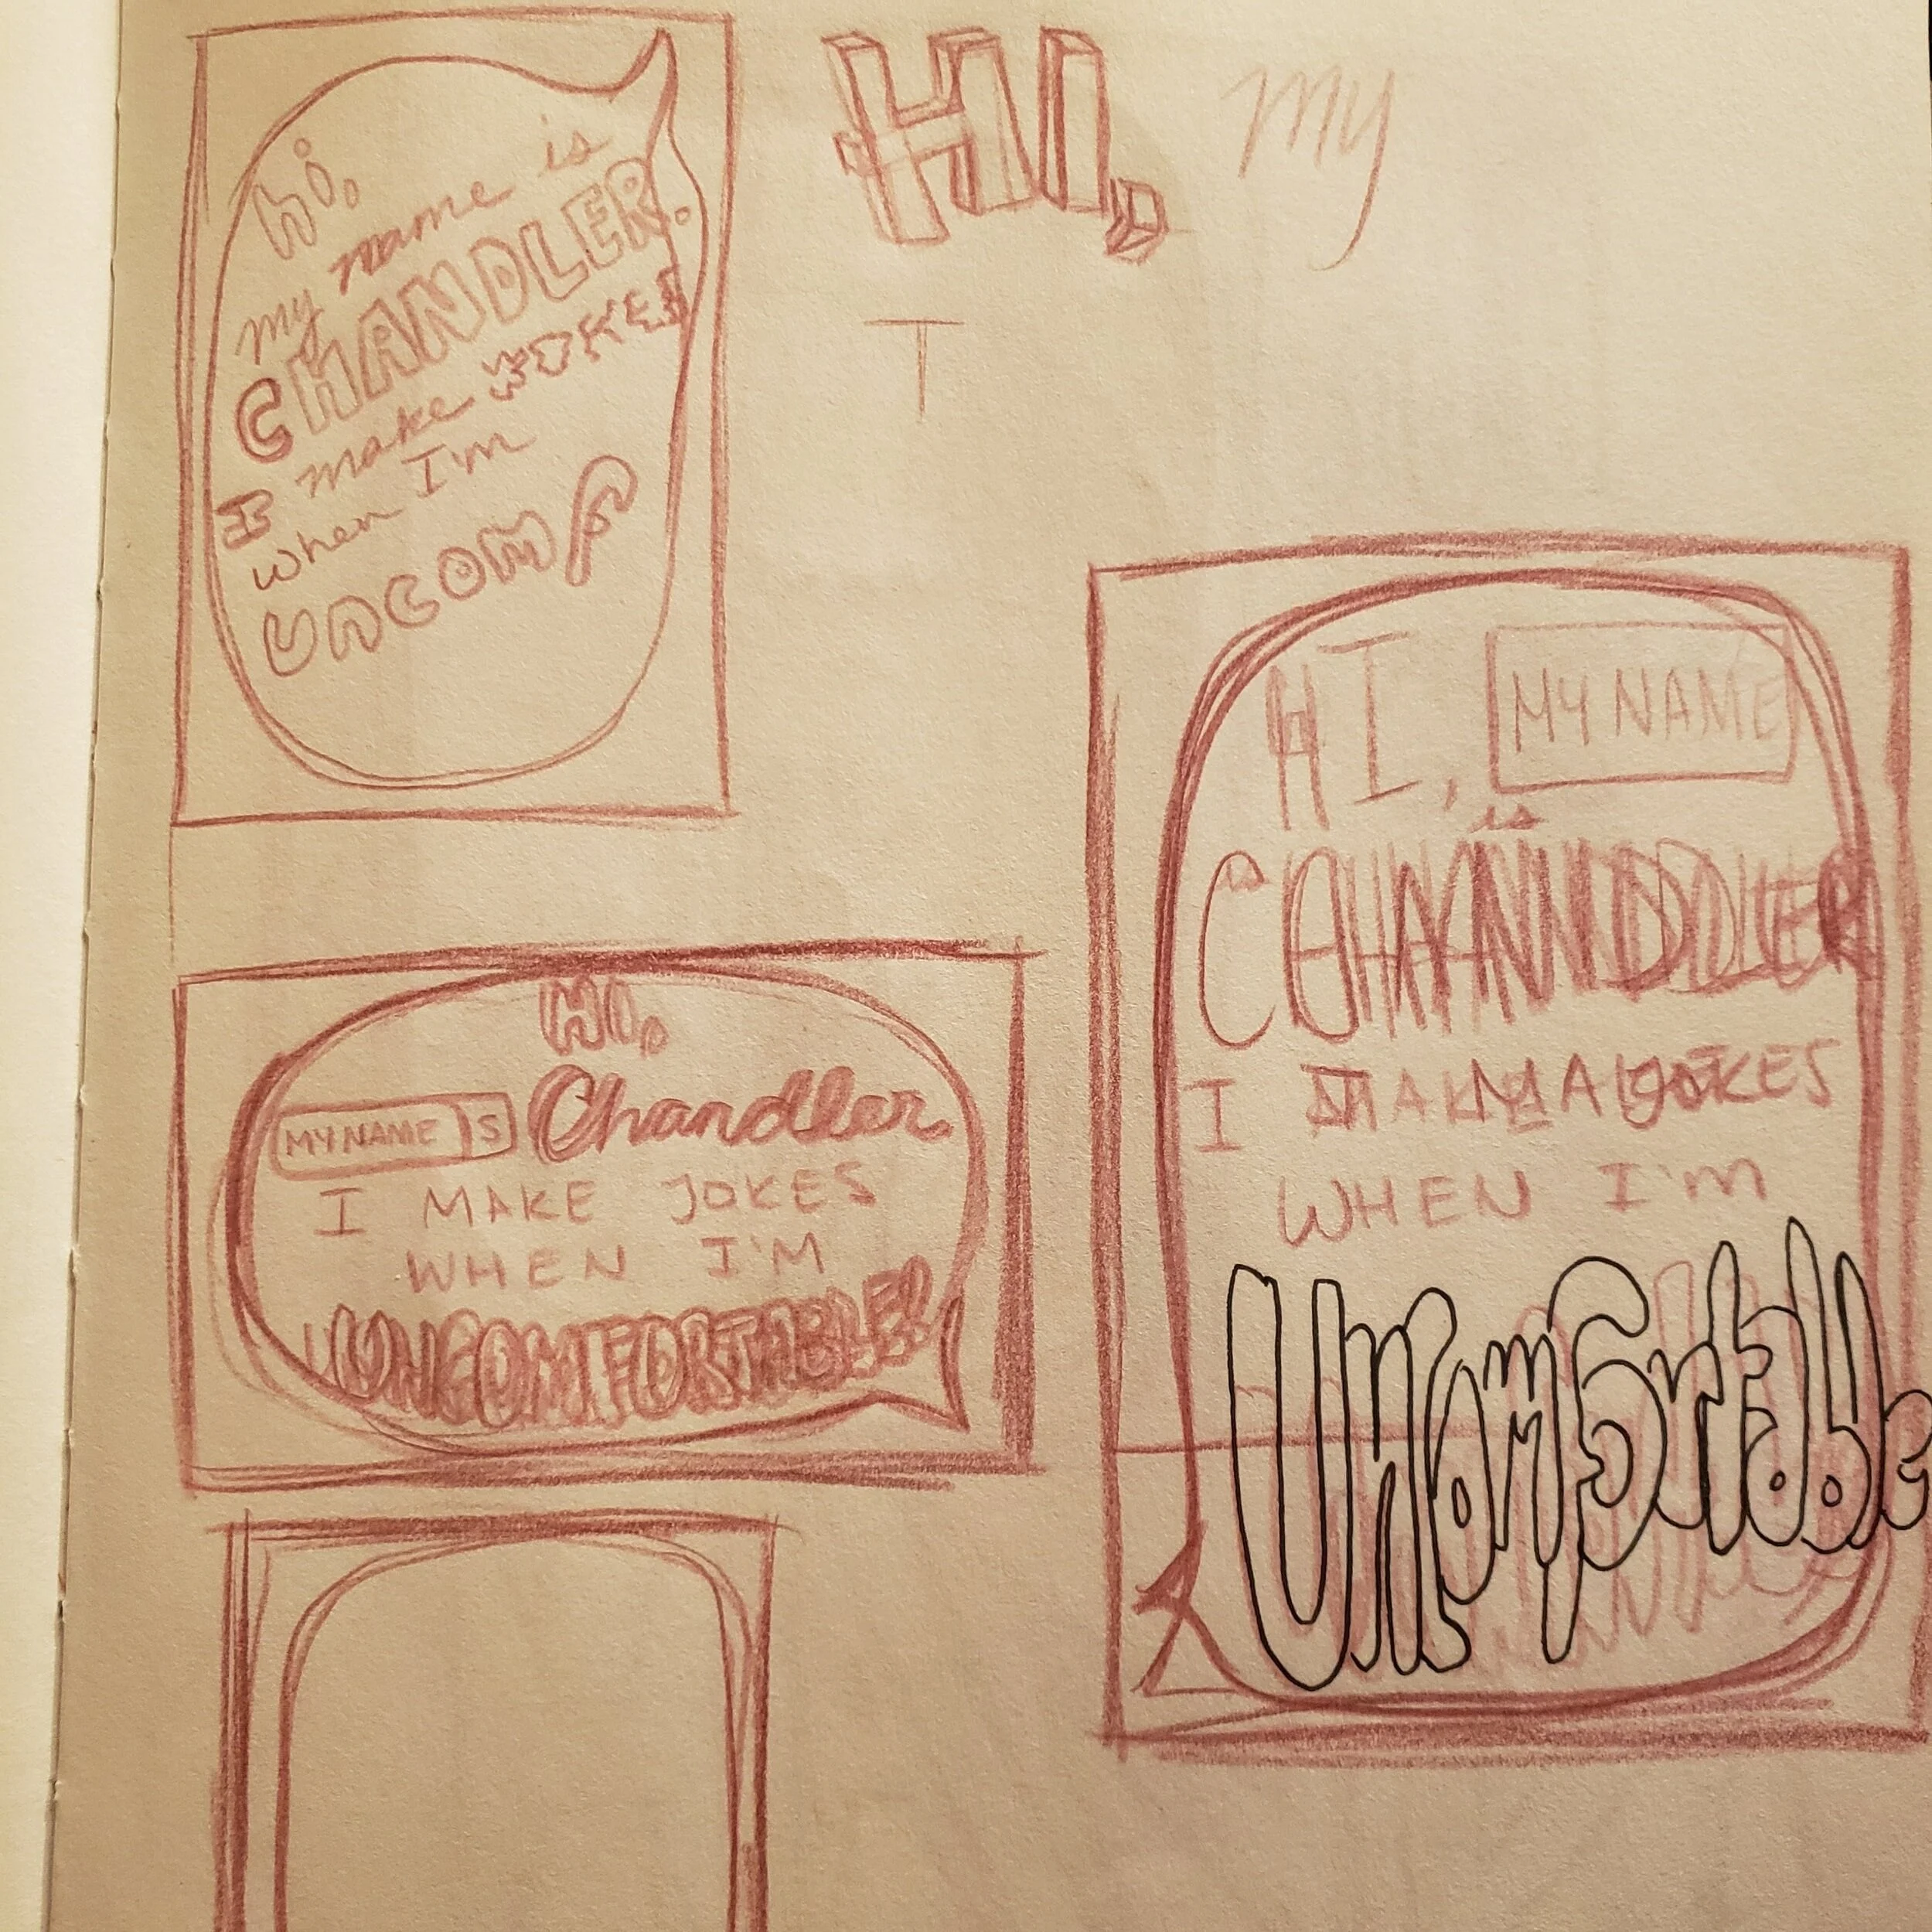 hi,
my name is
CHANDLER.
I make JOKES
when I'm
UNCOMF
HI, my
T
HI,
MY NAME IS Chandler.
I MAKE JOKES
WHEN I'M
UNCOMFORTABLE!
HI, MY NAME
is
CHANDLER
I MAKE JOKES
WHEN I'm
Uncomfortable